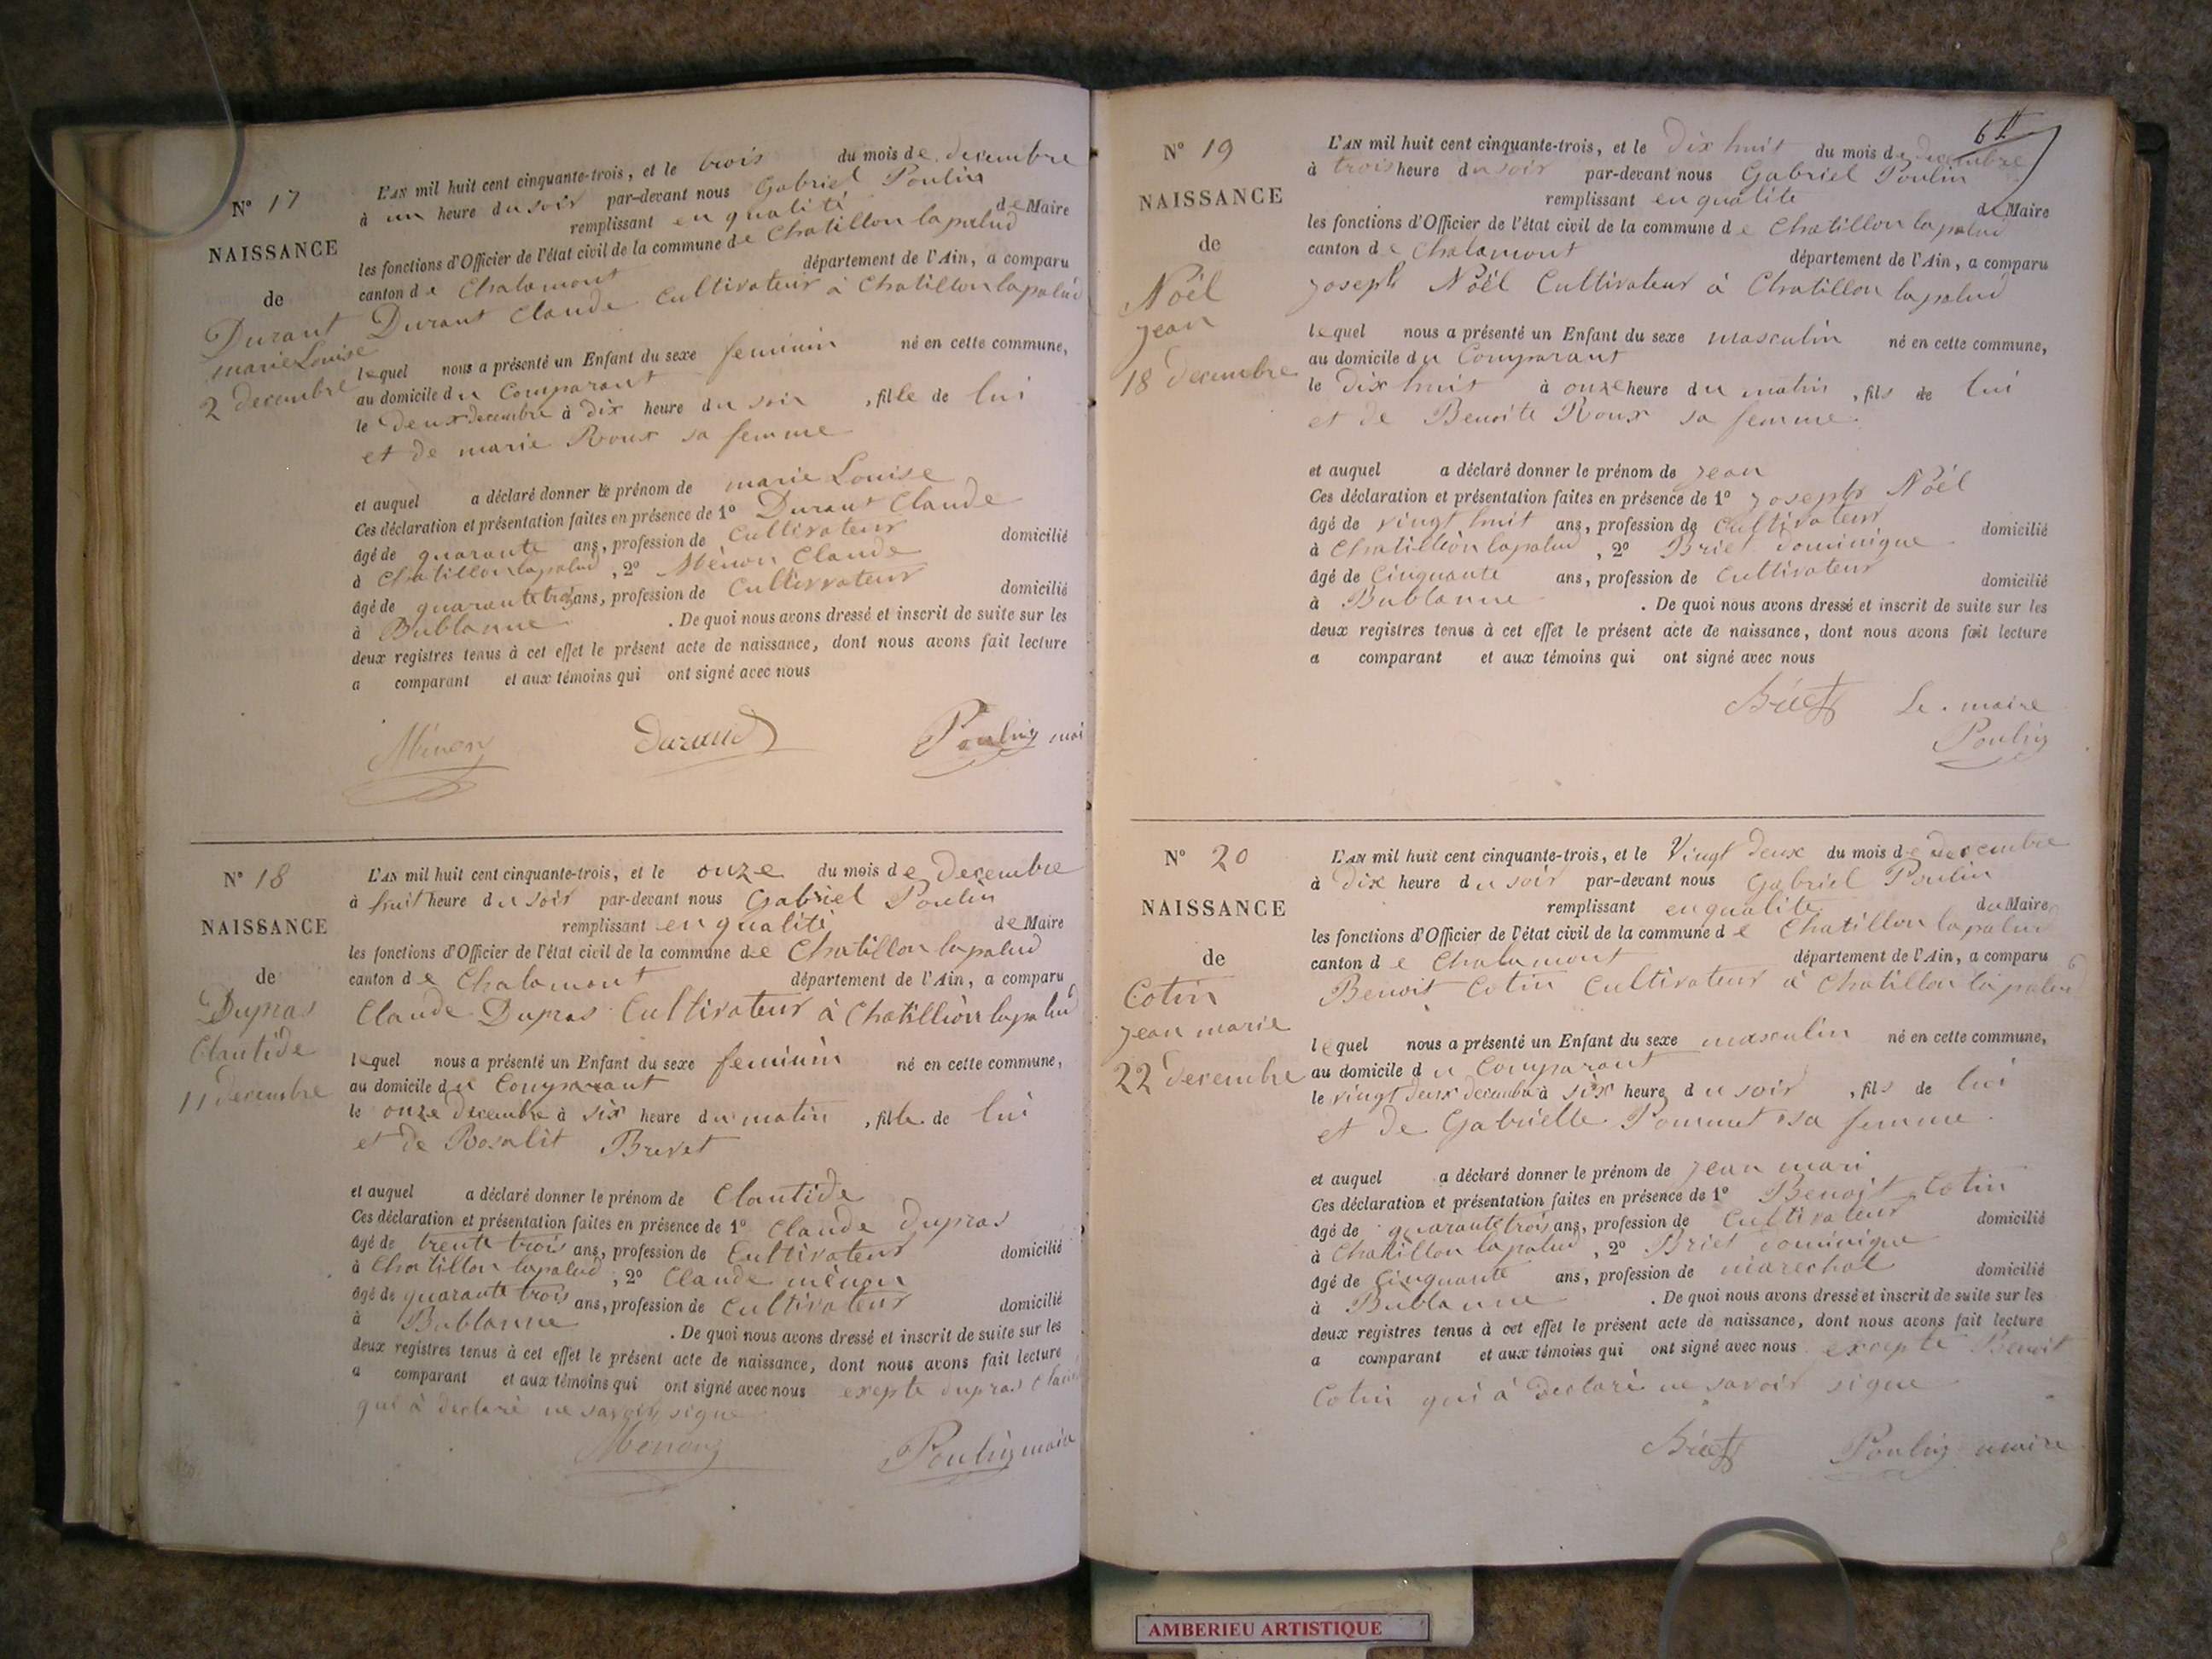 N° 17
NAISSANCE
de
Durant
marie Louise
2 decembre
L'AN mil huit cent cinquante-trois, et le trois du mois de decembre
à un heure du soir par-devant nous Gabriel Poulin
remplissant en qualité de Maire
les fonctions d'Officier de l'état civil de la commune de Chatillon lapalud
canton de Chalamont département de l'Ain, a comparu
Durant Claude Cultivateur à Chatillon lapalud
lequel nous a présenté un Enfant du sexe feminin né en cette commune,
au domicile du Comparant
le deux decembre à dix heure du soir , fille de lui
et de marie Roux sa femme
et auquel a déclaré donner le prénom de marie Louise
Ces déclaration et présentation faites en présence de 1° Durant Claude
âgé de quarante ans, profession de Cultivateur domicilié
à Chatillon lapalud , 2° Mènon Claude
âgé de quarante trois ans, profession de Cultivateur domicilié
à Bublanne . De quoi nous avons dressé et inscrit de suite sur les
deux registres tenus à cet effet le présent acte de naissance, dont nous avons fait lecture
a comparant et aux témoins qui ont signé avec nous
Menon Durand Poulin mai
N° 18
NAISSANCE
de
Dupras
Clautide
11 decembre
L'AN mil huit cent cinquante-trois, et le onze du mois de Decembre
à huit heure du soir par-devant nous Gabriel Poulin
remplissant en qualité de Maire
les fonctions d'Officier de l'état civil de la commune de Chatillon lapalud
canton de Chalamont département de l'Ain, a comparu
Claude Dupras Cultivateur à Chatilliòn lapalud
lequel nous a présenté un Enfant du sexe feminin né en cette commune,
au domicile du Comparant
le onze Decembre à six heure du matin , fille de lui
et de Rosalit Brevet
et auquel a déclaré donner le prénom de Clautide
Ces déclaration et présentation faites en présence de 1° Claude Dupras
âgé de trente trois ans, profession de Cultivateur domicilié
à Chatillon lapalud , 2° Claude mènon
âgé de quarante trois ans, profession de Cultivateur domicilié
à Bublanne . De quoi nous avons dressé et inscrit de suite sur les
deux registres tenus à cet effet le présent acte de naissance, dont nous avons fait lecture
a comparant et aux témoins qui ont signé avec nous exepte dupras Claude
qui à declaré ne savoir signe
Menon Poulin maire
6
N° 19
NAISSANCE
de
Noël
jean
18 decembre
L'AN mil huit cent cinquante-trois, et le Dix huit du mois de decembre
à trois heure du soir par-devant nous Gabriel Poulin
remplissant en qualite de Maire
les fonctions d'Officier de l'état civil de la commune de Chatillon lapalud
canton de Chalamont département de l'Ain, a comparu
joseph Noël Cultivateur à Chatillon lapalud
lequel nous a présenté un Enfant du sexe masculin né en cette commune,
au domicile du Comparant
le Dix huit à onze heure du matin , fils de lui
et de Benoite Roux sa femme
et auquel a déclaré donner le prénom de jean
Ces déclaration et présentation faites en présence de 1° joseph Noël
âgé de vingt huit ans, profession de Cultivateur domicilié
à Chatilliòn lapalud , 2° Briet dominique
âgé de Cinquante ans, profession de Cultivateur domicilié
à Bublanne . De quoi nous avons dressé et inscrit de suite sur les
deux registres tenus à cet effet le présent acte de naissance, dont nous avons fait lecture
a comparant et aux témoins qui ont signé avec nous
Briet Le maire
Poulin
N° 20
NAISSANCE
de
Cotin
jean marie
22 decembre
L'AN mil huit cent cinquante-trois, et le Vingt deux du mois de decembre
à Dix heure du soir par-devant nous Gabriel Poulin
remplissant en qualite de Maire
les fonctions d'Officier de l'état civil de la commune de Chatillon lapalud
canton de Chalamont département de l'Ain, a comparu
Benoit Cotin Cultivateur à Chatillon lapalud
lequel nous a présenté un Enfant du sexe masculin né en cette commune,
au domicile du Comparant
le vingt deux decembre à six heure du soir , fils de lui
et de Gabrielle Pommet sa femme
et auquel a déclaré donner le prénom de jean mari
Ces déclaration et présentation faites en présence de 1° Benoit Cotin
âgé de quarante trois ans, profession de Cultivateur domicilié
à Chatillon lapalud , 2° Briet dominique
âgé de Cinquante ans, profession de marechal domicilié
à Bublanne . De quoi nous avons dressé et inscrit de suite sur les
deux registres tenus à cet effet le présent acte de naissance, dont nous avons fait lecture
a comparant et aux témoins qui ont signé avec nous excepte Benoit
Cotin qui à declaré ne savoir signe
Briet Poulin maire
AMBERIEU ARTISTIQUE